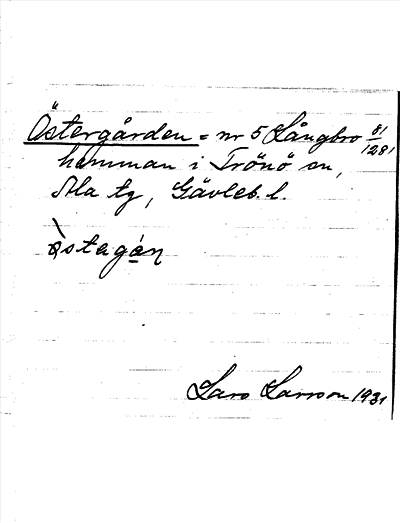 Östergården = nr 5 Långbro 81/1281
hemman i Trönö sn,
Ala tg, Gävleb. l.
östagán
Lars Larsson 1931